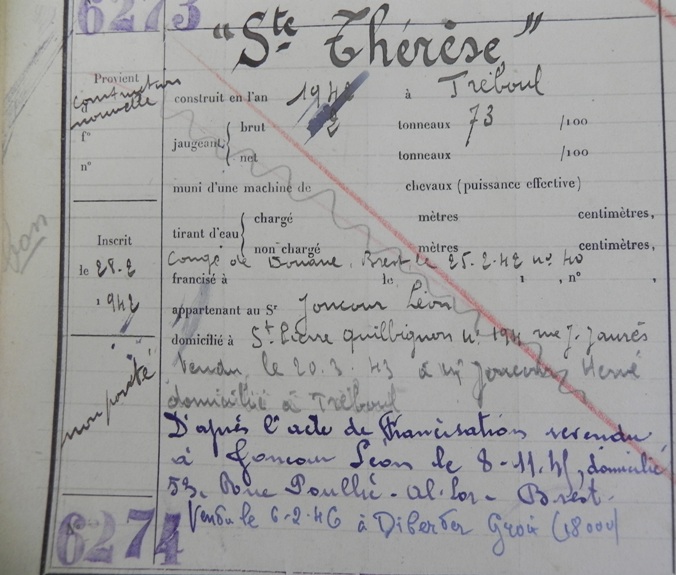 6273
"Ste Thérèse"
Provient
construction
nouvelle
construit en l'an 1942 à Tréboul
f°
n°
jaugeant { brut 2 tonneaux 73 /100
net tonneaux /100
muni d'une machine de chevaux (puissance effective)
tirant d'eau { chargé mètres centimètres,
non chargé mètres centimètres,
Inscrit
le 28-2
1942
Congé de Douane, Brest le 25-2-42 n° 40
francisé à le , , n° ,
appartenant au Sr Joncour Léon
domicilié à St Pierre quilbignon n° 194 rue J. Jaurés
non ponté
Vendu le 20.3.43 à Mr Joncour Hervé
domicilié à Tréboul
D'après l'acte de Francisation revendu
à Joncour Léon le 8-11-45, domicilié
53, Rue Poullic-al-lor - Brest.
Vendu le 6-2-46 à Diberder Groix (18000)
6274